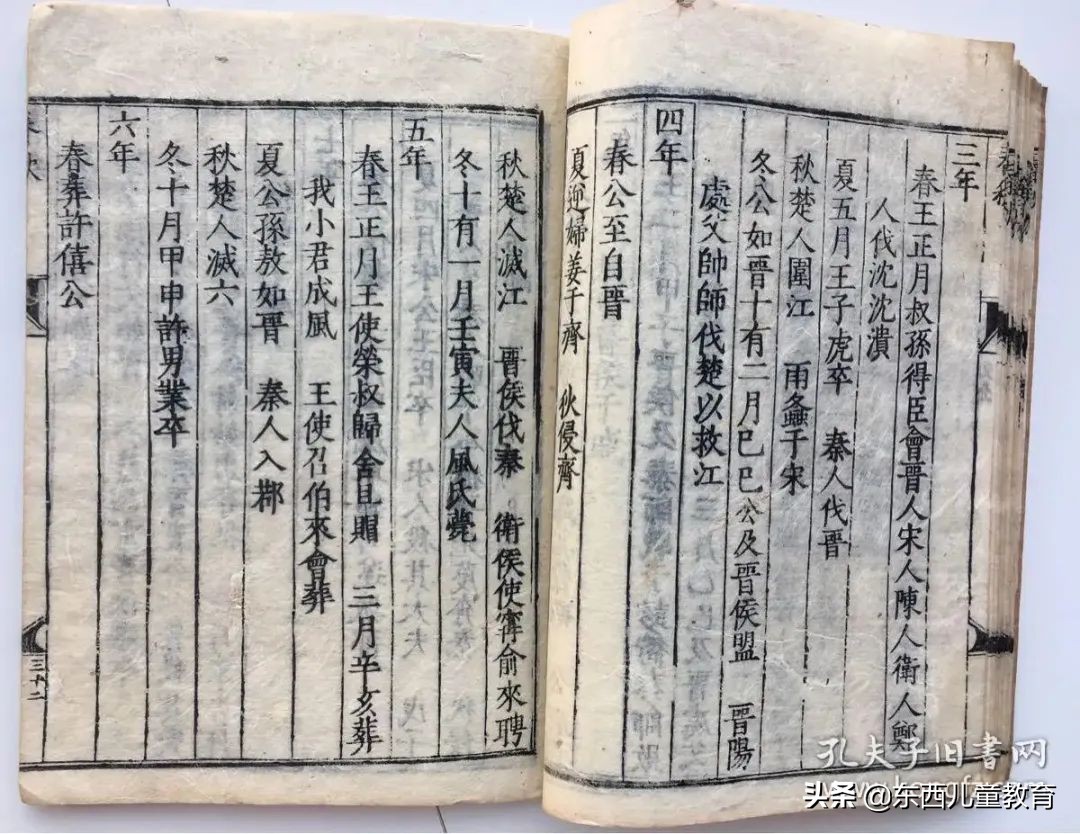 三年
春王正月叔孫得臣會晉人宋人陳人衛人鄭
人伐沈沈潰
夏五月王子虎卒 秦人伐晉
秋楚人圍江 雨螽于宋
冬公如晉十有二月巳巳公及晉侯盟 晉陽
處父帥師伐楚以救江
四年
春公至自晉
夏逆婦姜于齊 狄侵齊
秋楚人滅江 晉侯伐秦 衛侯使甯俞來聘
冬十有一月壬寅夫人風氏薨
五年
春王正月王使榮叔歸含且賵 三月辛亥葬
我小君成風 王使召伯來會葬
夏公孫敖如晉 秦人入鄀
秋楚人滅六
冬十月甲申許男業卒
六年
春葬許僖公
三十二
孔夫子旧书网
头条 @东西儿童教育